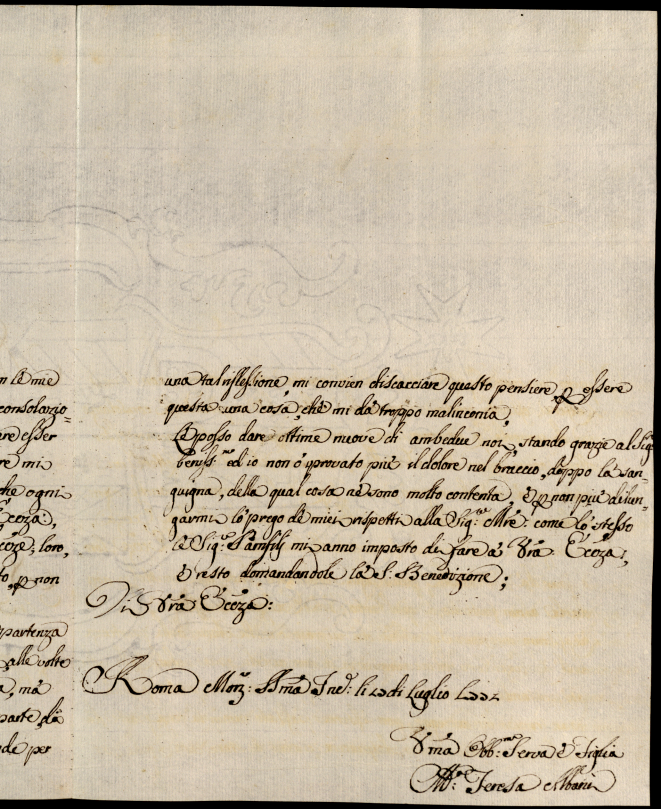 n le mie
consolazio=
are esser
re mi
che ogni
Ecc:za:,
cc:ze; loro,
to, p non
partenza
alle volte
a, mà
parte, dà
de per
una tal riflessione mi convien discacciare questo pensiere, p essere
questa una cosa, che mi dà troppo malinconia,
Le posso dare ottime nuove di ambedue noi, stando grazie al Sig:re
beniss:mo ed io non ò provato più il dolore nel braccio, doppo la san=
guigna, della qual cosa ne sono molto contenta, è p non più dilun=
garmi lo prego de miei rispetti alla Sig:ra M:re: come lo stesso
le Sig:re Pamfilj mi anno imposto di fare à V:ra Ecc:za;
è resto domandandole la S: Benedizione;
Di V:ra Ecc:za:
Roma luglio
V:ma Obb:ma Serva è Figlia
M:a Teresa Albani